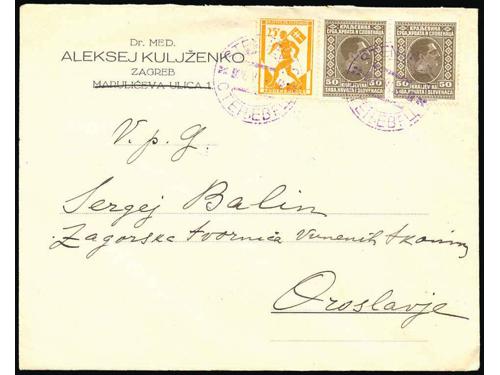 Dr. MED.
ALEKSEJ KULJŽENKO
ZAGREB
MARULIĆEVA ULICA 1
25
КРАЉЕВИНА
СРБА, ХРВАТА И СЛОВЕНАЦА
50 50
KRALJEVINA
SRBA, HRVATA I SLOVENACA
КРАЉЕВИНА
СРБА, ХРВАТА И СЛОВЕНАЦА
50 50
KRALJEVINA
SRBA, HRVATA I SLOVENACA
V. p. g.
Sergej Balin
Zagorska tvornica vunenih tkanina
Oroslavje